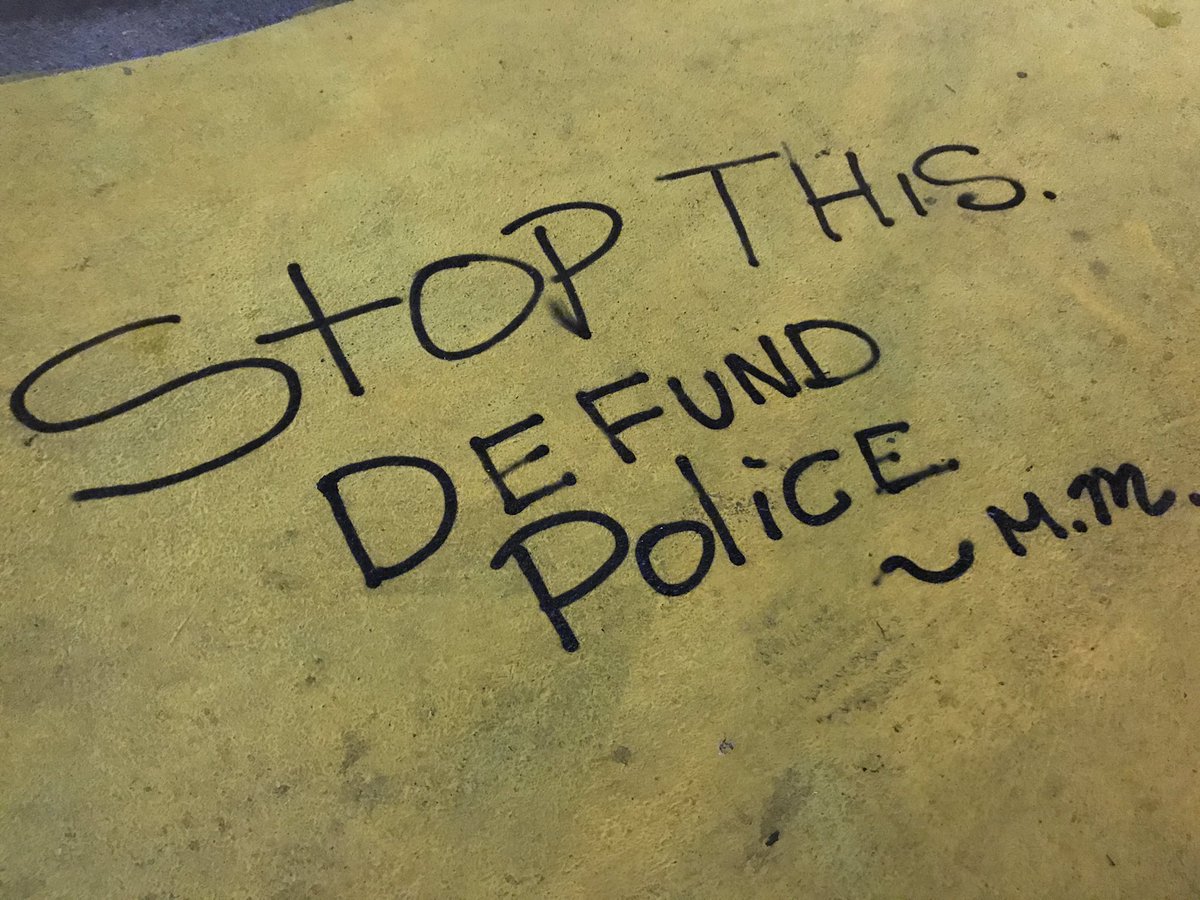 StOP THiS.
DEFUND
PoliCE
~ M.M.